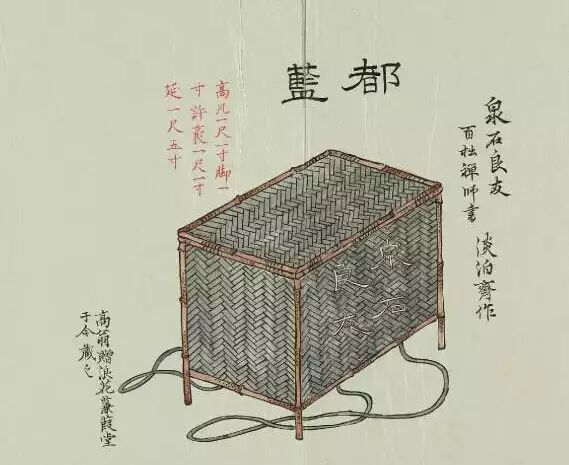 都藍
泉石良友
百拙禅師書
淡泊齊作
高凡一尺一寸脚一
寸許袤一尺一寸
延一尺五寸
泉石
良友
高翁贈浪花蒹葭堂
于今藏之